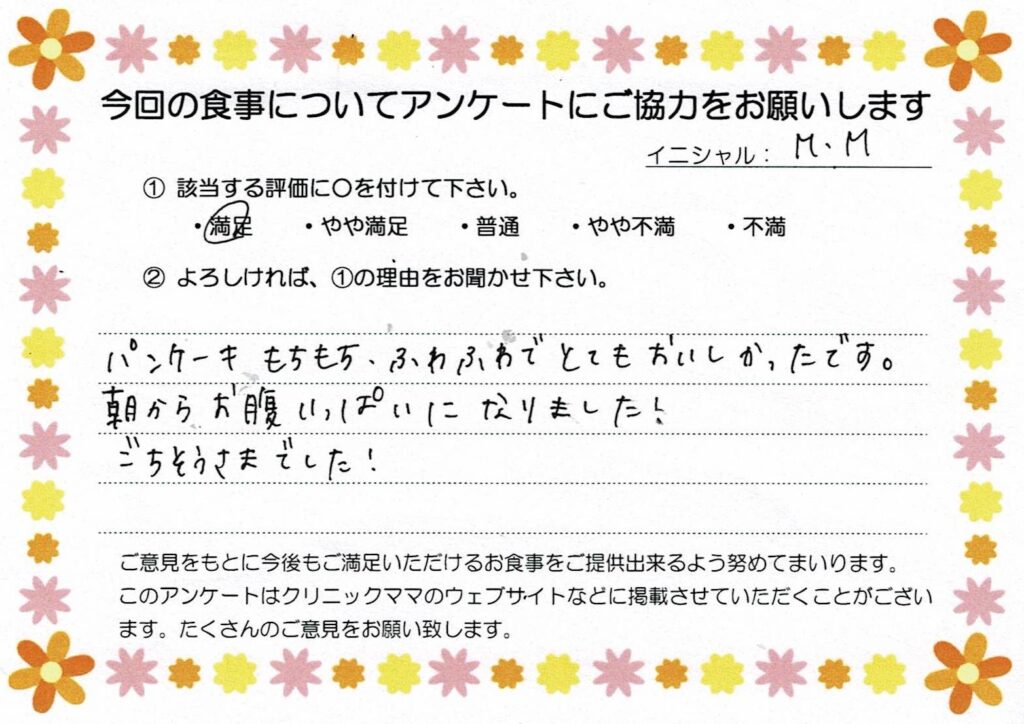 今回の食事についてアンケートにご協力をお願いします
イニシャル： M.M
① 該当する評価に〇を付けて下さい。
・満足 ・やや満足 ・普通 ・やや不満 ・不満
② よろしければ、①の理由をお聞かせ下さい。
パンケーキ もちもち、ふわふわで とても おいしかったです。
朝から お腹 いっぱいに なりました！
ごちそうさまでした！
ご意見をもとに今後もご満足いただけるお食事をご提供出来るよう努めてまいります。
このアンケートはクリニックママのウェブサイトなどに掲載させていただくことがござい
ます。たくさんのご意見をお願い致します。